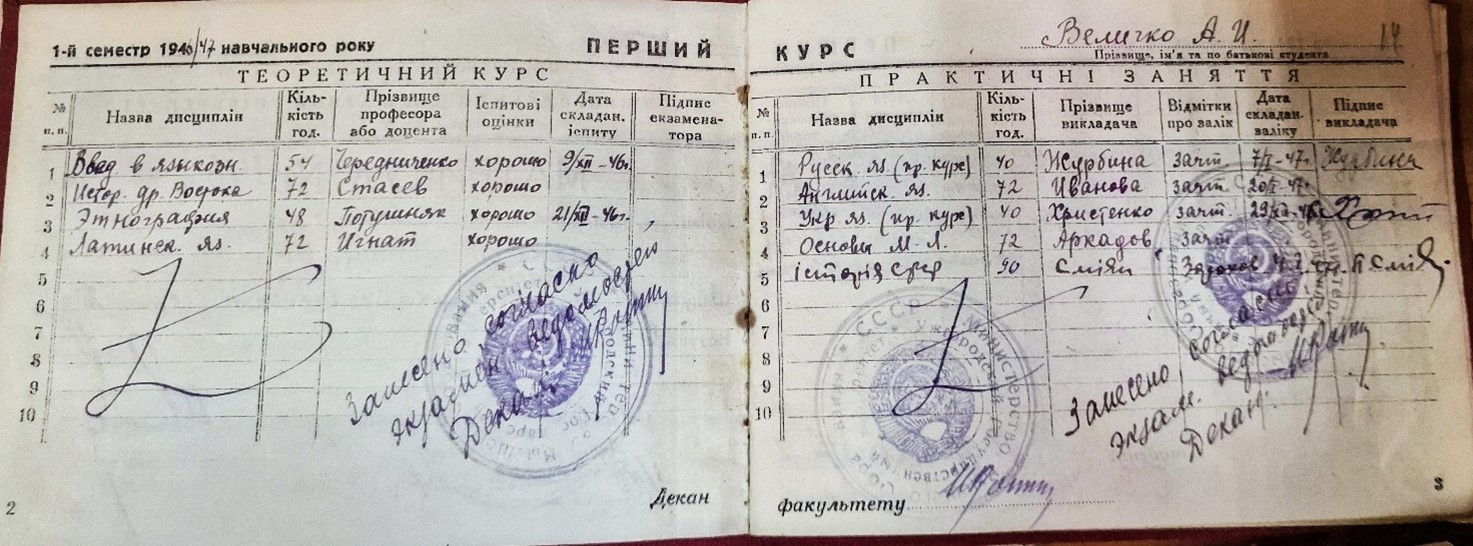 1-й семестр 1946/47 навчального року
ПЕРШИЙ
ТЕОРЕТИЧНИЙ КУРС
№ п. п. Назва дисциплін Кіль-кість год. Прізвище професора або доцента Іспитові оцінки Дата складан. іспиту Підпис екзамена-тора
1 Введ. в языкозн. 54 Чередниченко хорошо 9/XII-46г.
2 Истор. др. Востока 72 Стасев хорошо
3 Этнография 48 Потушняк хорошо 21/XII-46г.
4 Латинск. яз. 72 Игнат хорошо
5
6
7
8
9
10
Занесено согласно
экзамен. ведомостей
Декан
2
Декан
КУРС
Величко А. И. 14
Прізвище, ім'я та по батькові студента
ПРАКТИЧНІ ЗАНЯТТЯ
№ п. п. Назва дисциплін Кіль-кість год. Прізвище викладача Відмітки про залік Дата складан. заліку Підпис викладача
1 Русск. яз. (пр. курс) 40 Журбина зачт. 7/I-47г. Журбина
2 Английск. яз. 72 Иванова зачт. 20/I-47г.
3 Укр. яз. (пр. курс) 40 Христенко зачт.
4 Основы М-Л. 72 Аркадов зачт.
5 історія СРСР 90 Сміян
6
7
8
9
10
Занесено согласно
экзам. ведомостей
Декан:
факультету
3
СССР
Министерство